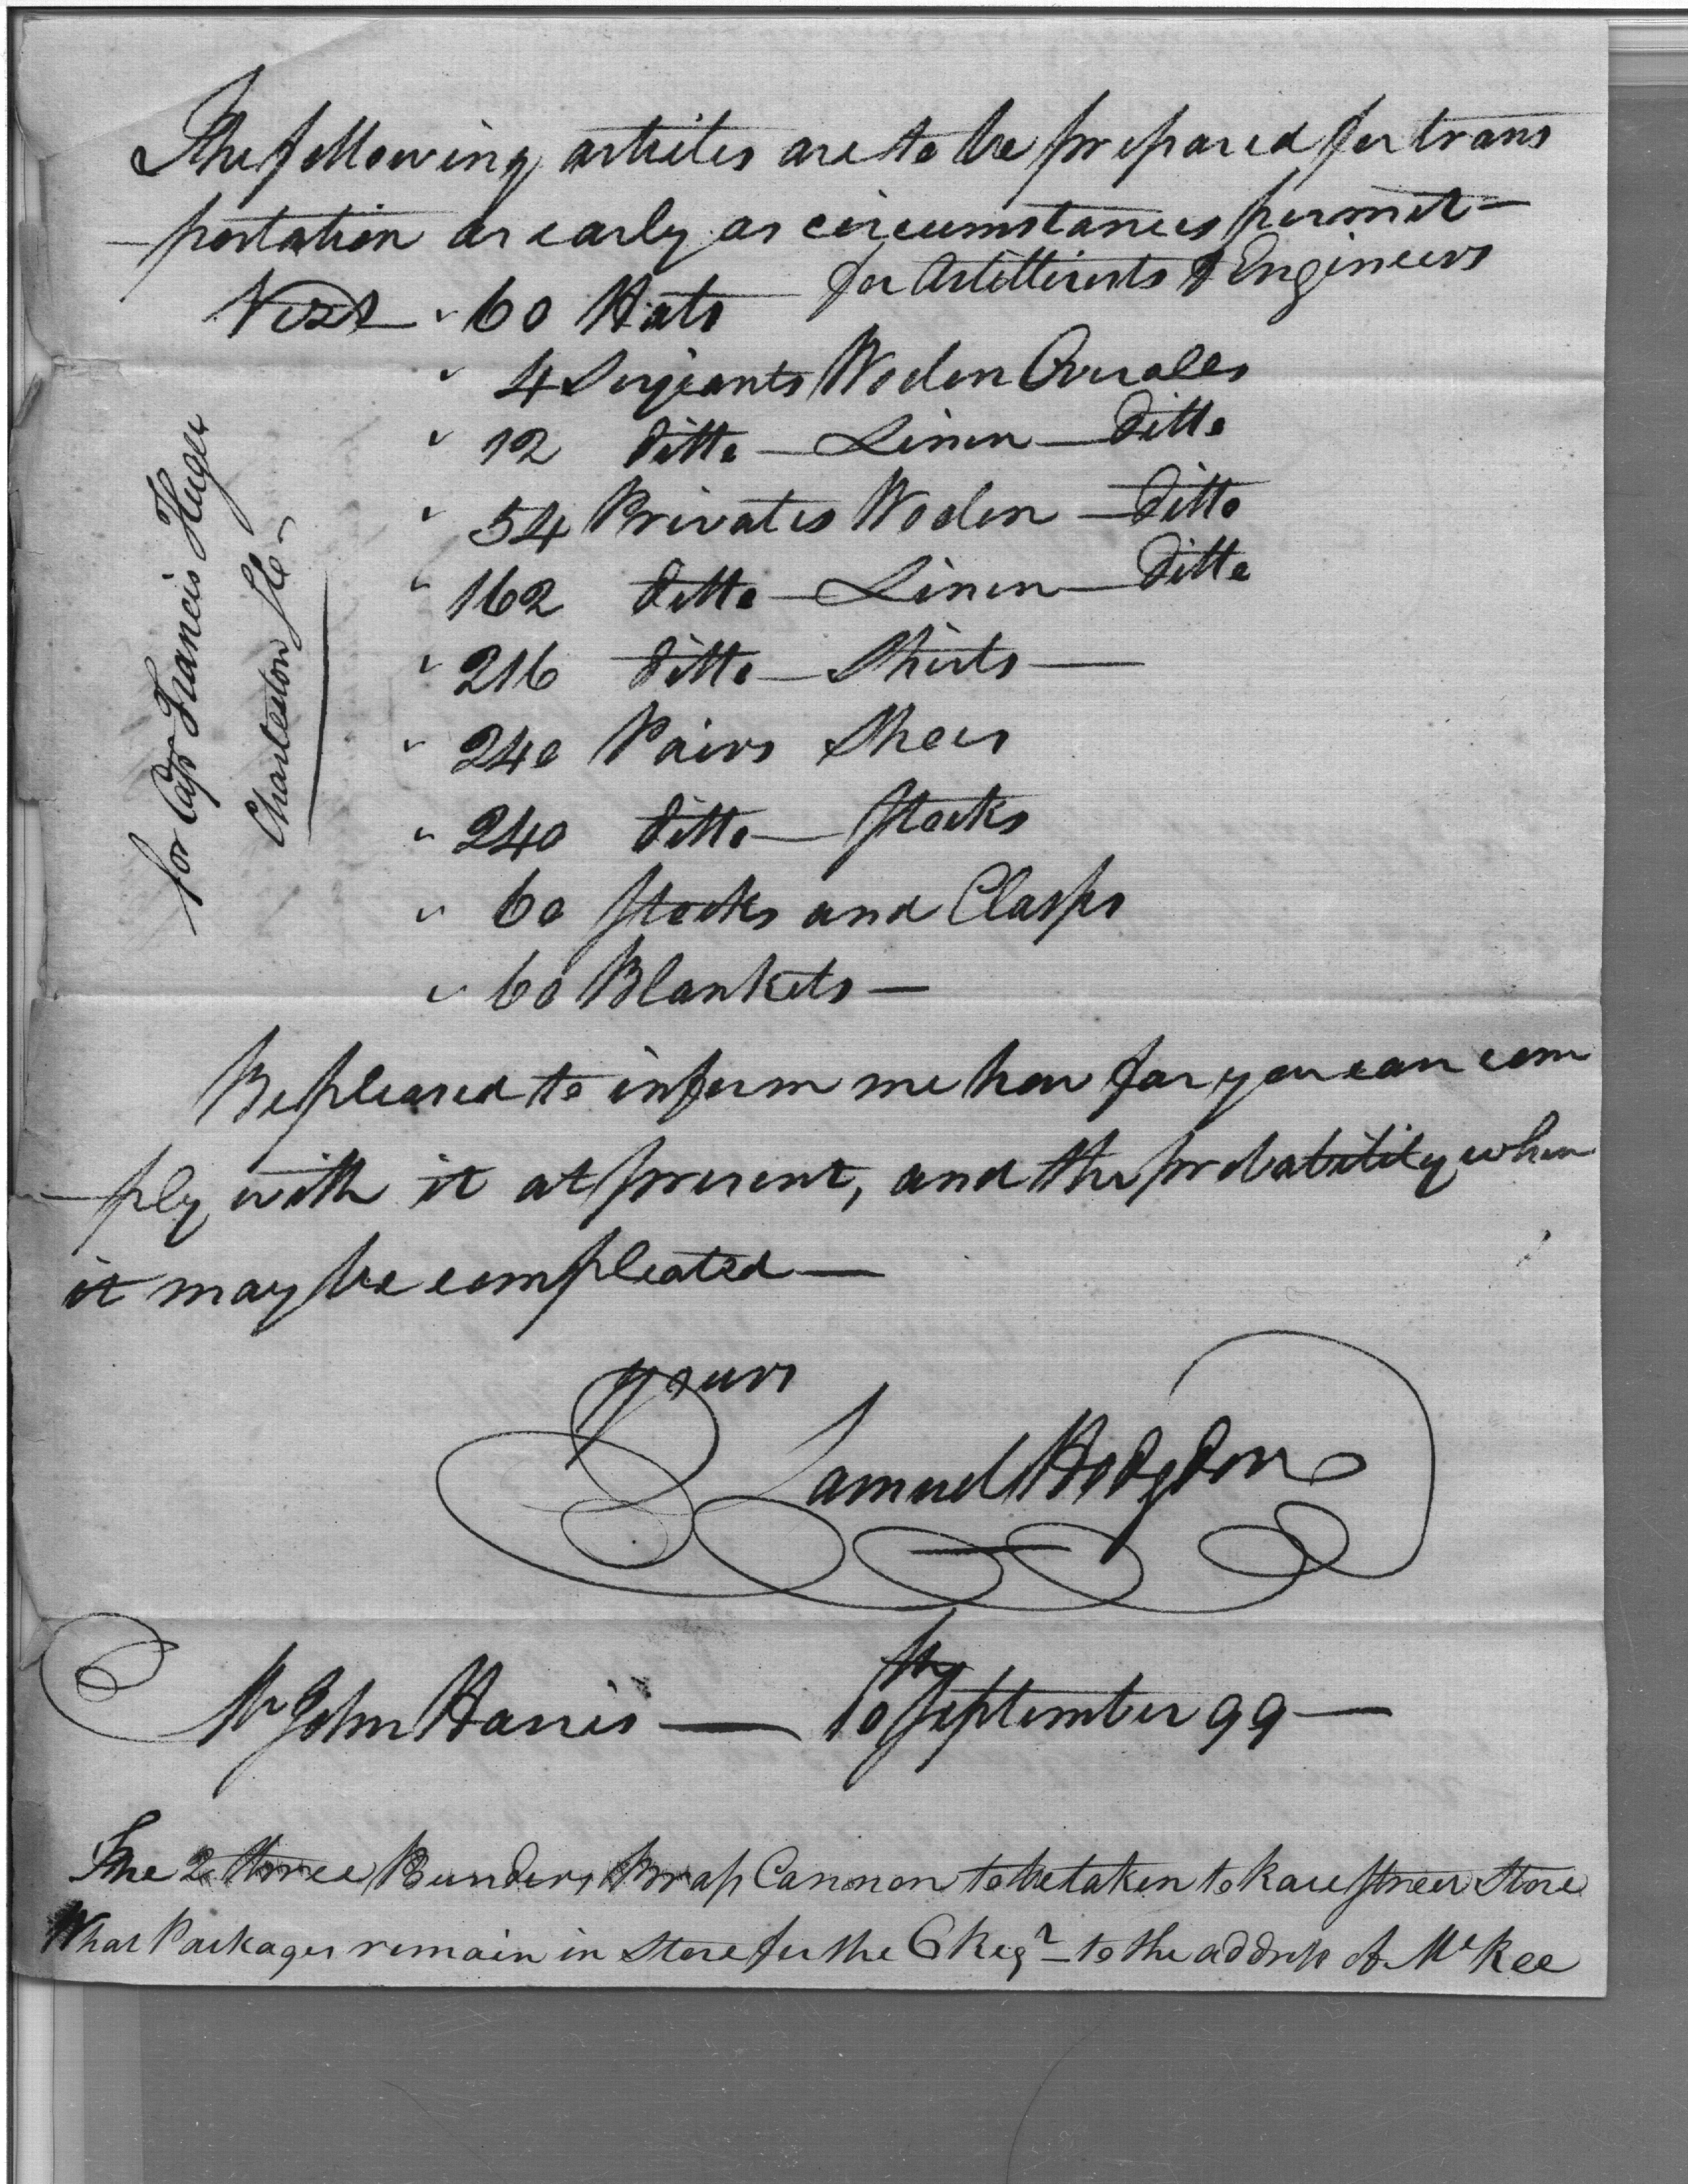 The following articles are to be prepared for trans
-portation as early as circumstances permit-
Vizt 60 Hats for Artillerists & Engineers
4 Serjeants Wolen Overalls
12 ditto - Linen - ditto
54 Privates Wolen - ditto
162 ditto - Linen - ditto
216 ditto - Shirts -
240 Pairs Shoes
240 ditto - Socks
60 Stocks and Clasps
60 Blankets -
for Capt Francis Huger
Charleston SC -
Be pleased to inform me how far you can com
-ply with it at present, and the probability when
it may be compleated -
Yours
Samuel Hodgdon
Mr John Harris - 10th September 99 -
The 2 three Punders Brass Cannon to be taken to Race Street Store
What Packages remain in Store for the 6 Regt - to the address of McKee